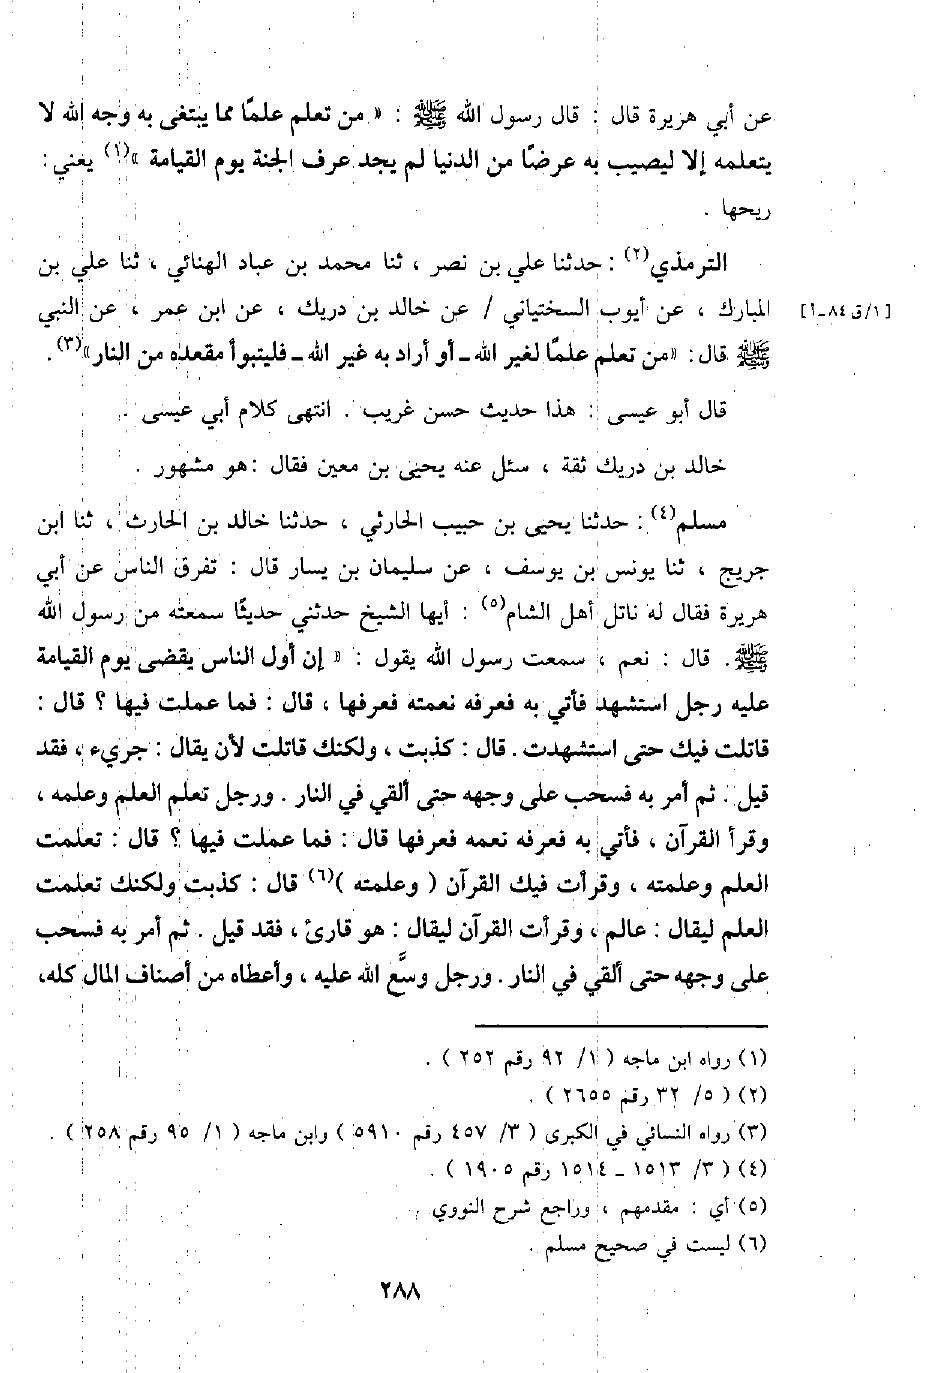 عن أبي هريرة قال : قال رسول الله ﷺ : « من تعلم علمًا مما يبتغى به وجه الله لا
يتعلمه إلا ليصيب به عرضًا من الدنيا لم يجد عرف الجنة يوم القيامة »(١) يعني :
ريحها .
الترمذي(٢) : حدثنا علي بن نصر ، ثنا محمد بن عباد الهنائي ، ثنا علي بن
المبارك ، عن أيوب السختياني / عن خالد بن دريك ، عن ابن عمر ، عن النبي [١/ق ٨٤-أ]
ﷺ قال : «من تعلم علمًا لغير الله - أو أراد به غير الله - فليتبوأ مقعده من النار»(٣) .
قال أبو عيسى : هذا حديث حسن غريب . انتهى كلام أبي عيسى .
خالد بن دريك ثقة ، سئل عنه يحيى بن معين فقال : هو مشهور .
مسلم(٤) : حدثنا يحيى بن حبيب الحارثي ، حدثنا خالد بن الحارث ، ثنا ابن
جريج ، ثنا يونس بن يوسف ، عن سليمان بن يسار قال : تفرق الناس عن أبي
هريرة فقال له ناتل أهل الشام(٥) : أيها الشيخ حدثني حديثًا سمعته من رسول الله
ﷺ . قال : نعم ، سمعت رسول الله يقول : « إن أول الناس يقضى يوم القيامة
عليه رجل استشهد فأتي به فعرفه نعمته فعرفها ، قال : فما عملت فيها ؟ قال :
قاتلت فيك حتى استشهدت . قال : كذبت ، ولكنك قاتلت لأن يقال : جريء ، فقد
قيل . ثم أمر به فسحب على وجهه حتى ألقي في النار . ورجل تعلم العلم وعلمه ،
وقرأ القرآن ، فأتي به فعرفه نعمه فعرفها قال : فما عملت فيها ؟ قال : تعلمت
العلم وعلمته ، وقرأت فيك القرآن ( وعلمته )(٦) قال : كذبت ولكنك تعلمت
العلم ليقال : عالم ، وقرأت القرآن ليقال : هو قارئ ، فقد قيل . ثم أمر به فسحب
على وجهه حتى ألقي في النار . ورجل وسَّع الله عليه ، وأعطاه من أصناف المال كله،
(١) رواه ابن ماجه ( ١/ ٩٢ رقم ٢٥٢ ) .
(٢) ( ٥/ ٣٢ رقم ٢٦٥٥ ) .
(٣) رواه النسائي في الكبرى ( ٣/ ٤٥٧ رقم ٥٩١٠ ) وابن ماجه ( ١/ ٩٥ رقم ٢٥٨ ) .
(٤) ( ٣/ ١٥١٣ - ١٥١٤ رقم ١٩٠٥ ) .
(٥) أي : مقدمهم ، وراجع شرح النووي .
(٦) ليست في صحيح مسلم .
٢٨٨